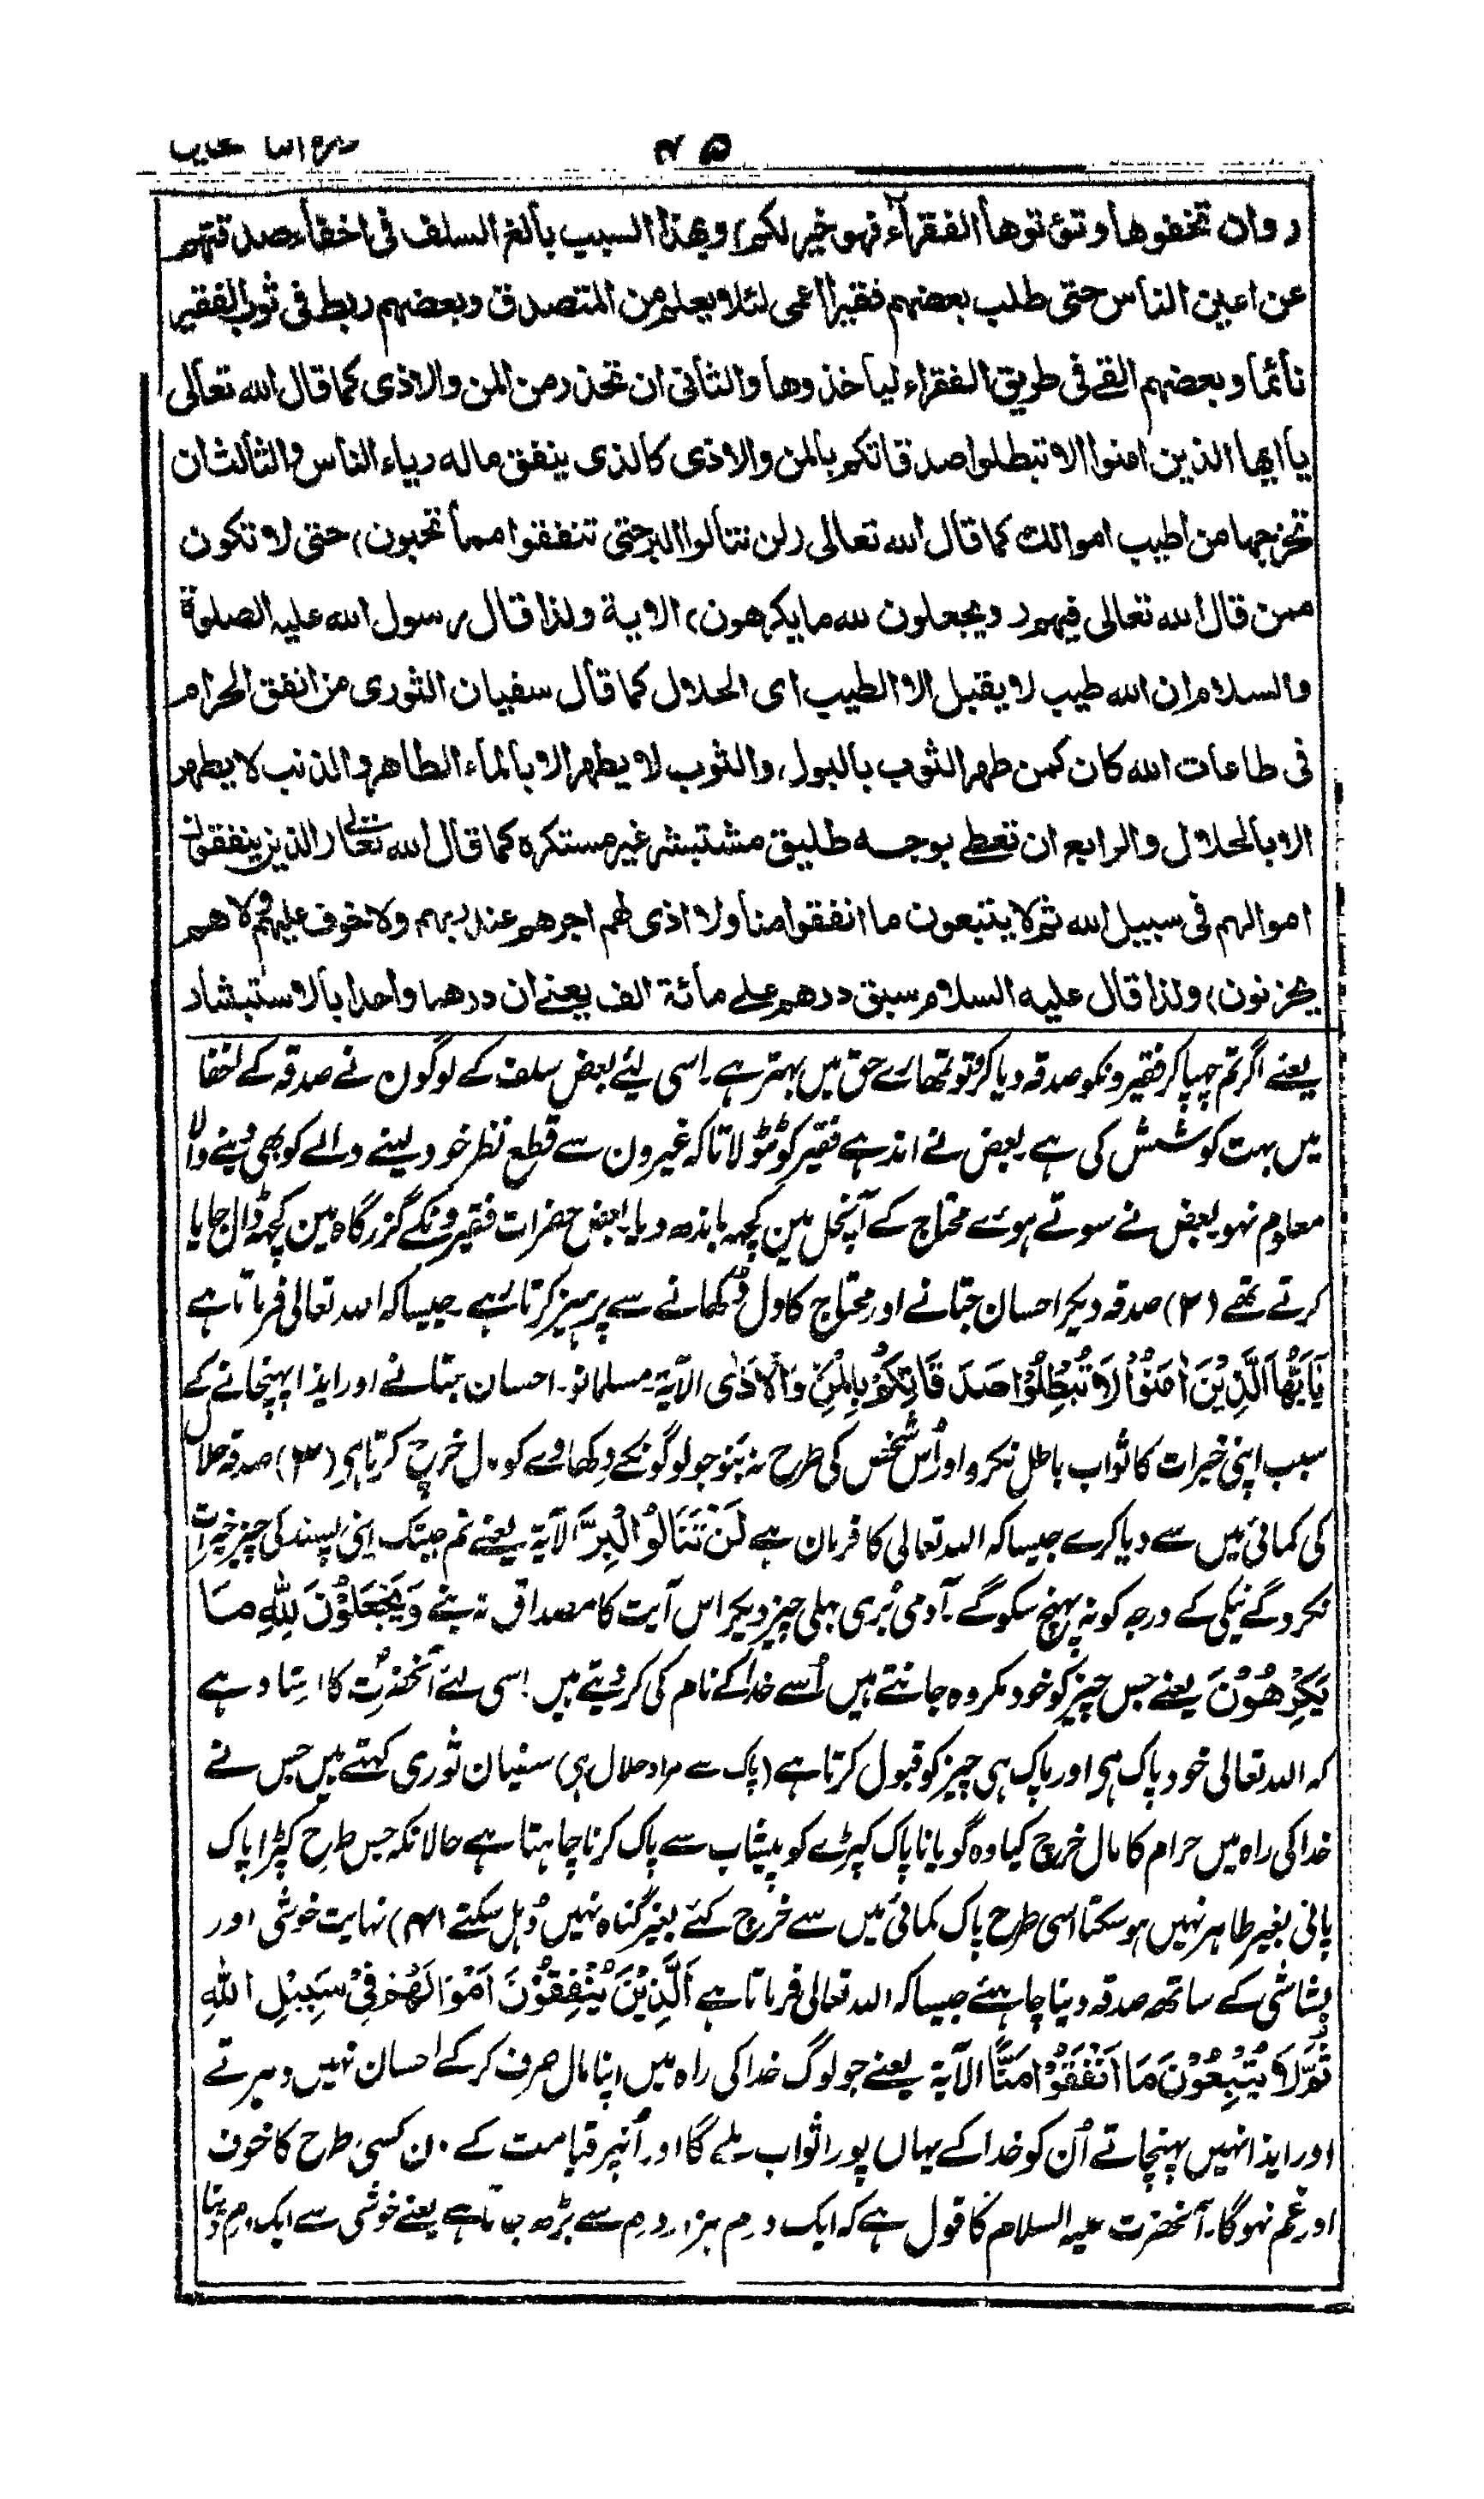 (وان تخفوها وتؤتوها الفقراء فهو خير لكم) وبهذا السبب بالغ السلف فى اخفاء صدقتهم
عن اعين الناس حتى طلب بعضهم فقيرا اعمى لئلا يعلم من المتصدق وبعضهم ربط فى ثوب الفقير
نائما وبعضهم القے فى طريق الفقراء ليأخذوها والثانى ان تحذر من المن والاذى كما قال الله تعالى
يا ايها الذين امنوا لا تبطلوا صدقاتكم بالمن والاذى كالذى ينفق ماله رياء الناس والثالث ان
تخرجها من اطيب اموالك كما قال الله تعالى (لن تنالوا البر حتى تنفقوا مما تحبون) حتى لا تكون
ممن قال الله تعالى فيهم (ويجعلون لله ما يكرهون) الاية ولذا قال رسول الله عليه الصلوة
والسلام ان الله طيب لا يقبل الا الطيب اى الحلال كما قال سفيان الثورى من انفق الحرام
فى طاعات الله كان كمن طهر الثوب بالبول، والثوب لا يطهر الا بالماء الطاهر والذنب لا يطهر
الا بالحلال والرابع ان تعطے بوجه طليق مشتبشر غير مستكره كما قال الله تعالى (الذين ينفقون
اموالهم فى سبيل الله ثم لا يتبعون ما انفقوا منا ولا اذى لهم اجرهم عند ربهم ولا خوف عليهم ولا هم
يحزنون) ولذا قال عليه السلام سبق درهم علے مائة الف يعنے ان درهما واحدا بالاستبشار
یعنے اگر تم چھپا کر فقیرونکو صدقہ دیا کرو تو تمھارے حق میں بہتر ہے۔ اسی لیئے بعض سلف کے لوگون نے صدقہ کے اخفا
میں بہت کوشش کی ہے بعض نے اندہے فقیر کو ٹٹولا تاکہ غیرون سے قطع نظر خود لینے والے کو بھی دینے والا
معلوم نہو بعض نے سوتے ہوئے محتاج کے آنچل مین کچہہ باندھ دیا۔ بعض حضرات فقیرونکے گزرگاہ مین کچہہ ڈال جایا
کرتے تھے (۲) صدقہ دیکر احسان جتانے اور محتاج کا دل دُکھانے سے پرہیز کرتا رہے۔ جیسا کہ اللہ تعالی فرماتا ہے
یَٰاَیُّهَا الَّذِیْنَ اٰمَنُوْا لَا تُبْطِلُوْا صَدَقَاتِكُمْ بِالْمَنِّ وَالْاَذٰی الآیۃ۔ مسلمانو۔ احسان جتانے اور ایذا پہنچانے کے
سبب اپنی خیرات کا ثواب باطل نکرو اور اُس شخص کی طرح نہ بنو جو لوگونکے دکھاوے کو مال خرچ کرتا ہی (۳) صدقہ حلال
کی کمائی میں سے دیا کرے جیسا کہ اللہ تعالی کا فرمان ہے لَنْ تَنَالُوا الْبِرَّ الآیۃ یعنے تم جبتک اپنی پسند کی چیز خیرات
نکروگے نیکی کے درجہ کو نہ پہنچ سکوگے۔ آدمی بُری بہلی چیز دیکر اس آیت کا مصداق نہ بنے وَیَجْعَلُوْنَ لِلّٰهِ مَا
یَكْرَهُوْنَ یعنے جس چیز کو خود مکروہ جانتے ہیں اُسے خدا کے نام کی کر دیتے ہیں۔ اسی لئے آنحضرتؐ کا ارشاد ہے
کہ اللہ تعالی خود پاک ہی اور پاک ہی چیز کو قبول کرتا ہے (پاک سے مراد حلال ہی) سفیان ثوری کہتے ہیں جس نے
خدا کی راہ میں حرام کا مال خرچ کیا وہ گویا ناپاک کپڑے کو پیشاب سے پاک کرنا چاہتا ہے حالانکہ جس طرح کپڑا پاک
پانی بغیر طاہر نہیں ہو سکتا اسی طرح پاک کمائی میں سے خرچ کئے بغیر گناہ نہیں دُہل سکتے (۴) نہایت خوشی اور
بشاشی کے ساتھ صدقہ دینا چاہئے جیسا کہ اللہ تعالی فرماتا ہے اَلَّذِیْنَ یُنْفِقُوْنَ اَمْوَالَهُمْ فِیْ سَبِیْلِ اللّٰهِ
ثُمَّ لَا یُتْبِعُوْنَ مَا اَنْفَقُوْا مَنًّا الآیۃ یعنے جو لوگ خدا کی راہ میں اپنا مال صرف کر کے احسان نہیں دہرتے
اور ایذا نہیں پہنچاتے اُن کو خدا کے یہاں پورا ثواب ملے گا اور اُنپر قیامت کے دن کسی طرح کا خوف
اور غم نہوگا۔ آنحضرت علیہ السلام کا قول ہے کہ ایک درم ہزار درم سے بڑھ جاتا ہے یعنے خوشی سے ایک درم دینا